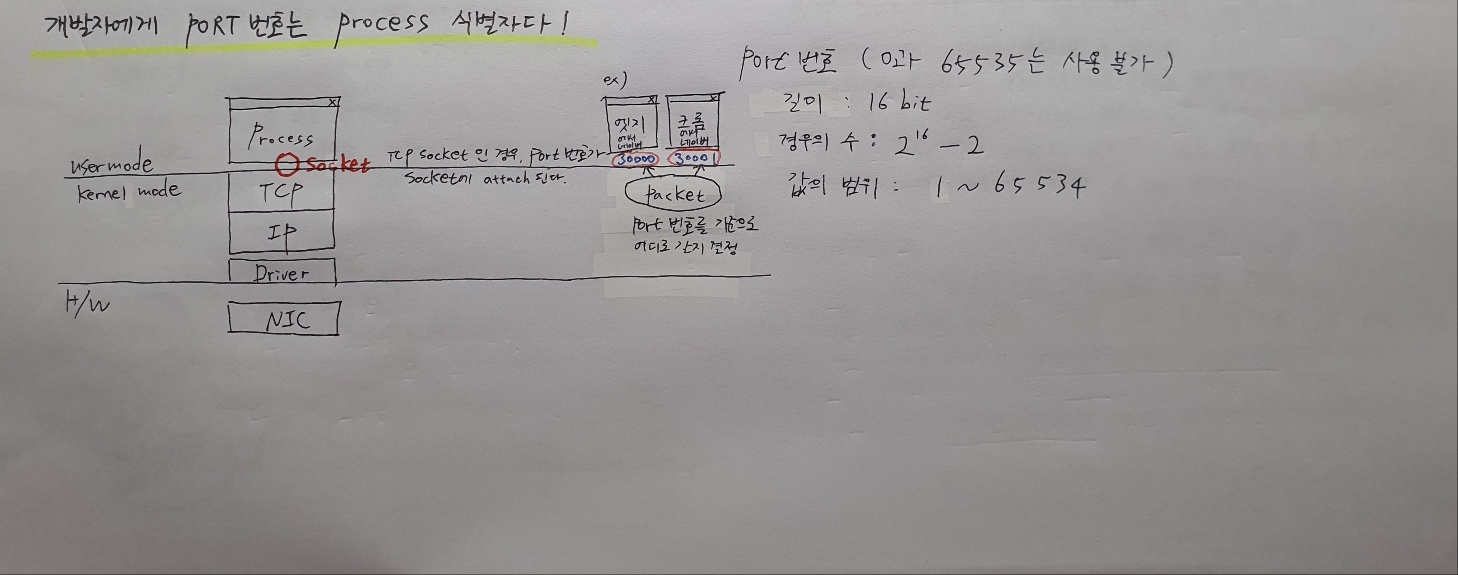 개발자에게 PORT 번호는 process 식별자다!
Port 번호 (0과 65535는 사용 불가)
길이 : 16 bit
경우의 수 : 2¹⁶ - 2
값의 범위 : 1 ~ 65534
x
Process
user mode
socket
TCP socket 인 경우, port 번호가
socket에 attach 된다.
kernel mode
TCP
IP
Driver
H/W
NIC
ex)
x
x
엣지
에서
네이버
크롬
에서
네이버
30000
30001
packet
port 번호를 기준으로
어디로 갈지 결정